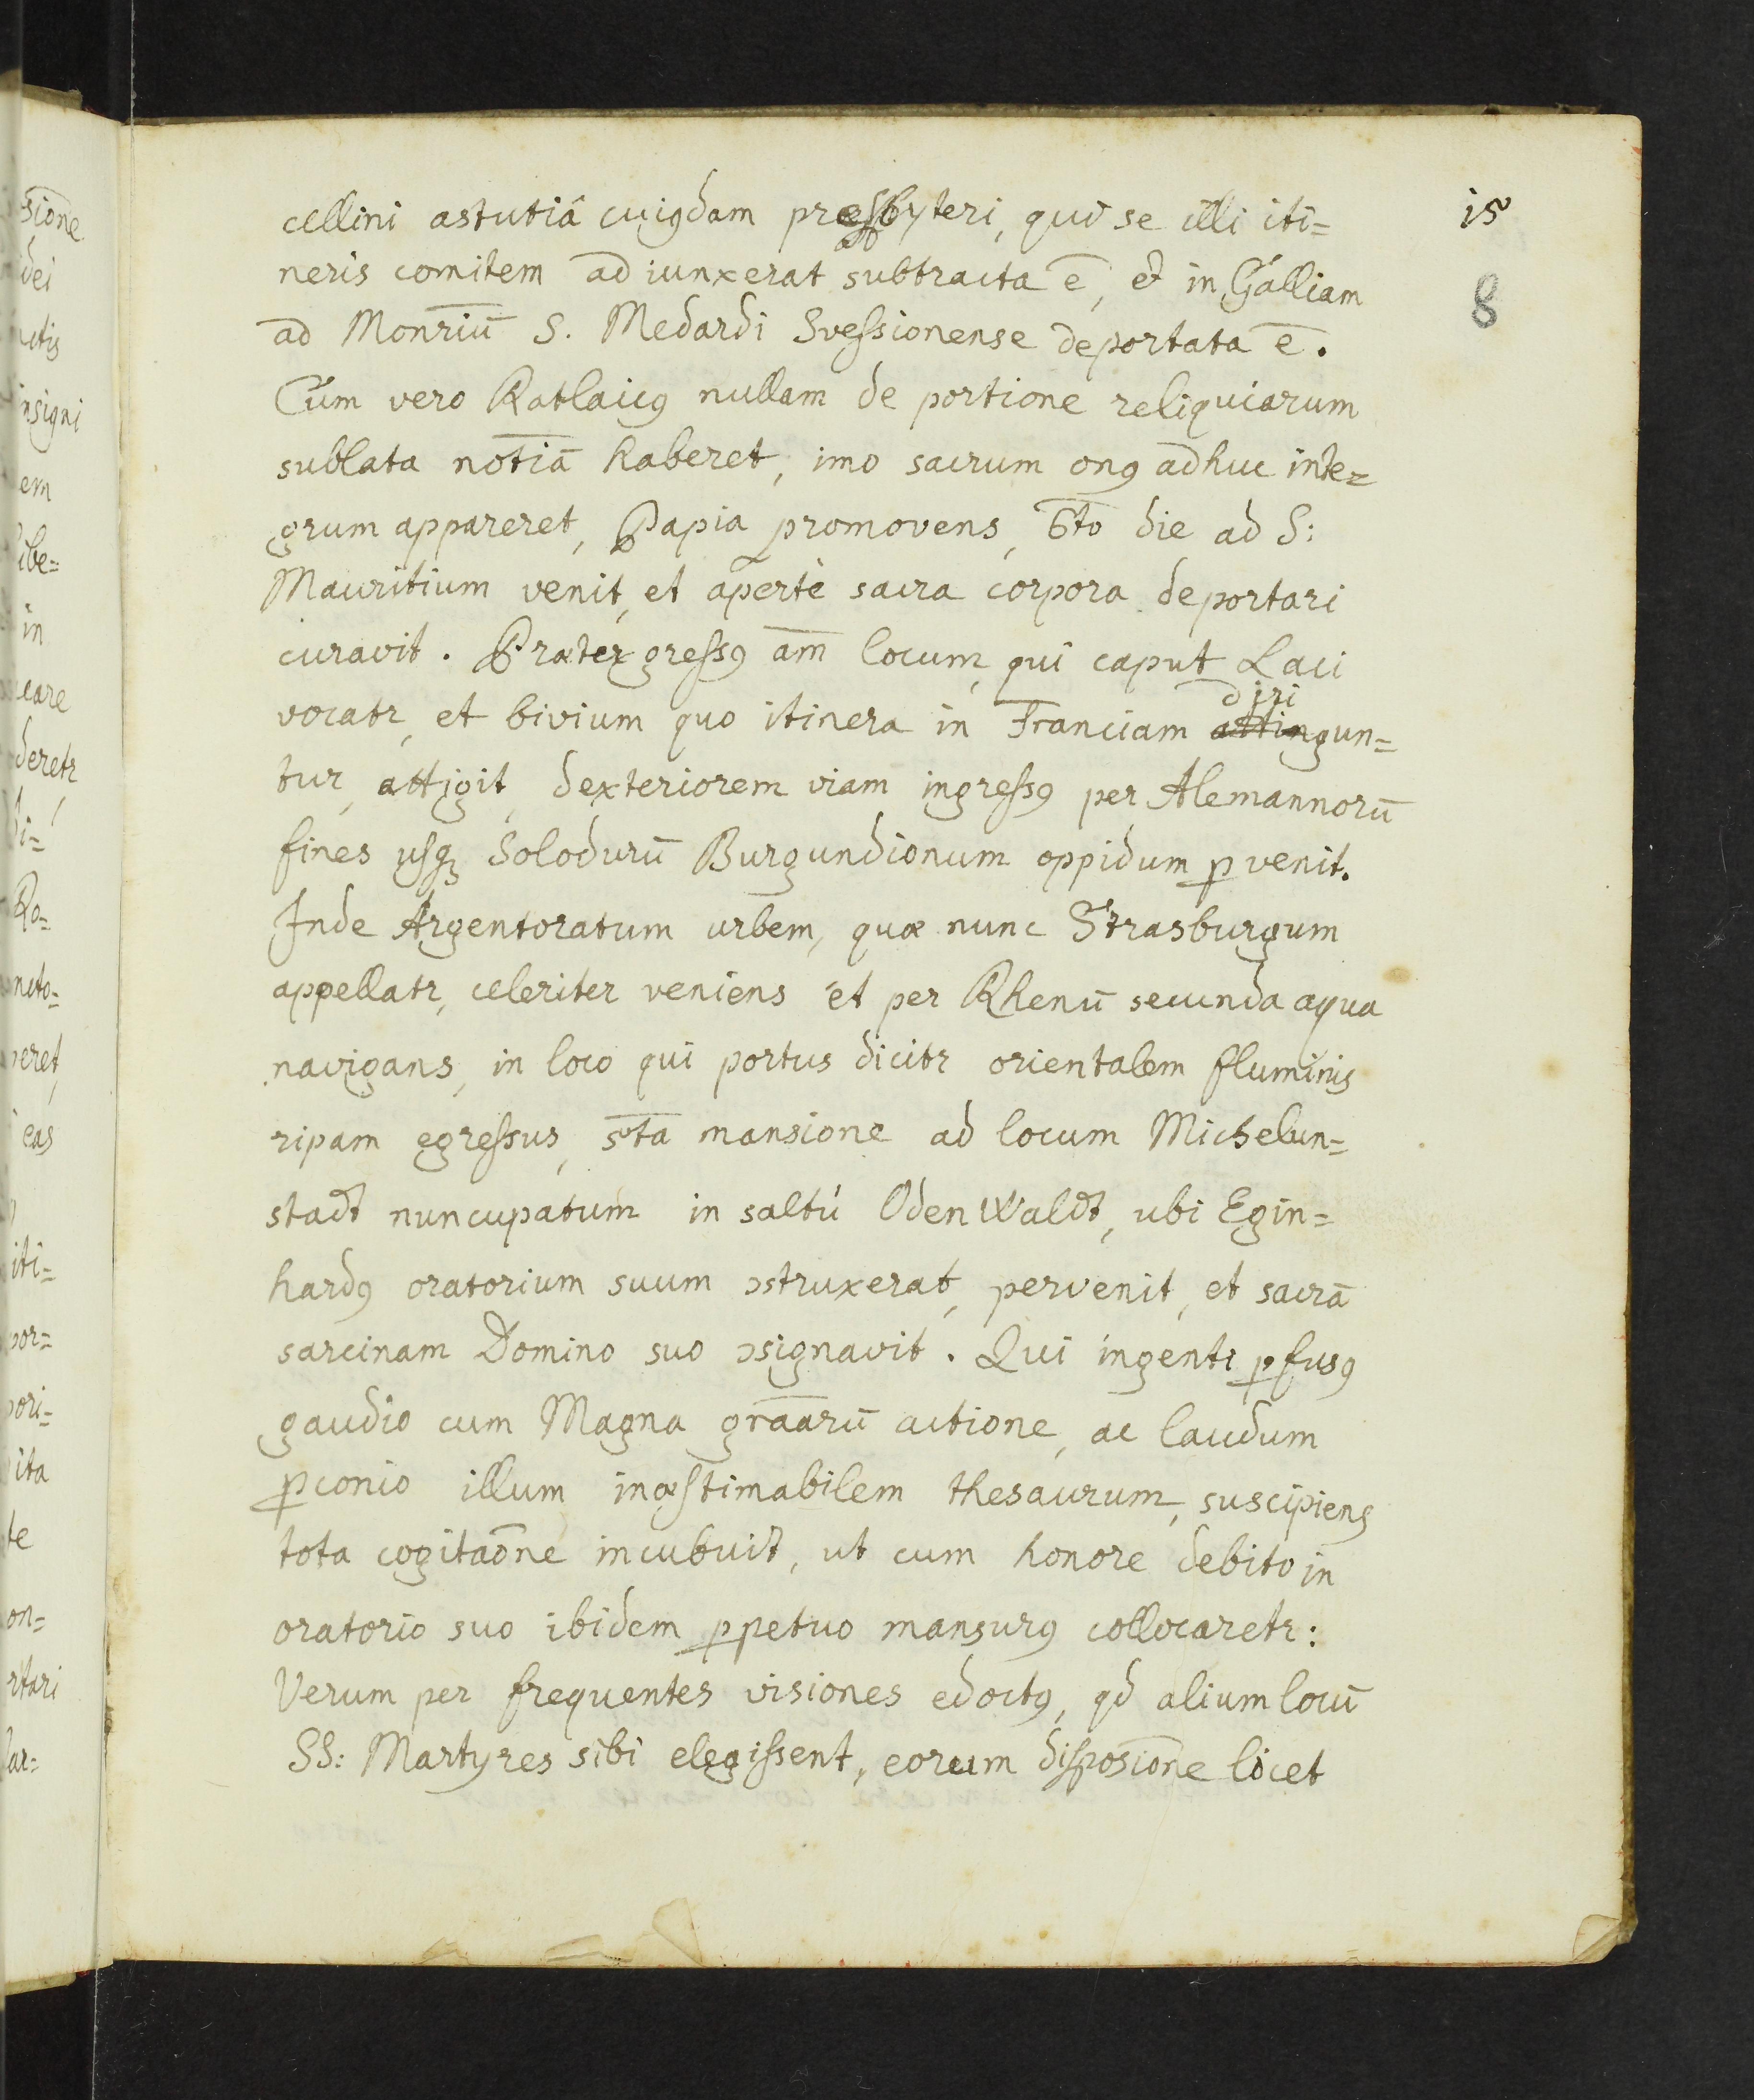 15
8
cellini astutiâ cuiꝰdam presbyteri, qui se illi iti=
neris comitem adiunxerat subtracta ē, et in Galliam
ad Monr̄iū S. Medardi Svessionense deportata ē.
Cùm vero Ratlaicꝰ nullam de portione reliquiarum
sublata not̄iā haberet, imo sacrum onꝰ adhuc inte=
grum appareret, Papia promovens, 6t̄o die ad S:
Mauritium venit, et apertè sacra corpora deportari
curavit. Prætergressꝰ am̄ locum, qui caput Laci
vocatr, et bivium quo itinera in Franciam diri
gun=
tur, attigit, dexteriorem viam ingressꝰ per Alemannorū
fines usqꝫ Solodurū Burgundionum oppidum ꝑvenit.
Inde Argentoratum urbem, quæ nunc Strasburgum
appellatr, celeriter veniens et per Rhenū secunda aqua
navigans, in loco qui portus dicitr orientalem fluminis
ripam egressus, 5t̄a mansione ad locum Michelun=
stadt nuncupatum in saltú OdenWaldt, ubi Egin=
hardꝰ oratorium suum ↄstruxerat, pervenit, et sacrā
sarcinam Domino suo ↄsignavit. Qui ingenti ꝑfusꝰ
gaudio cum Magna gr̄aarū actione, ac laudum
p̄conio illum inæstimabilem thesaurum, suscipiens
tota cogitaōne incubuit, ut cum honore debito in
oratorio suo ibidem ꝑpetuo mansurꝰ collocaretr:
Verum per frequentes visiones edoctꝰ, qd alium locū
SS: Martyres sibi elegissent, eorum disposiōne licet
sione
dei
nctis
insigni
em
ibe=
in
care
deretr
di=
Ro=
ncto=
eret,
eas
iti=
por=
pori=
ita
te
on=
rtari
lar=